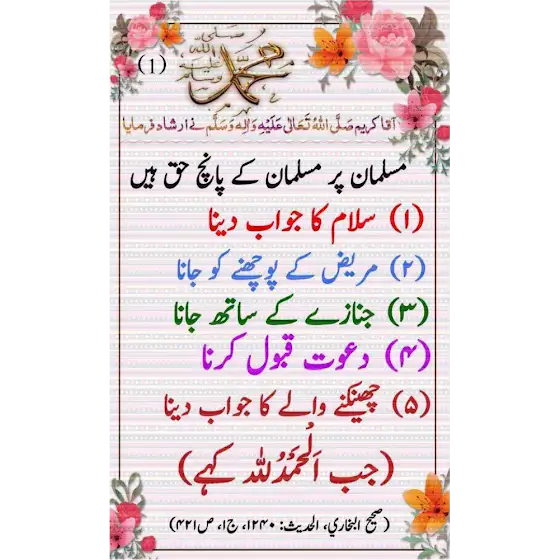 (1)
محمد صلى الله عليه وسلم
آقا کریم صَلَّی اللہُ تَعَالٰی عَلَیْہِ وَاٰلِہٖ وَسَلَّم نے ارشاد فرمایا
مسلمان پر مسلمان کے پانچ حق ہیں
(۱) سلام کا جواب دینا
(۲) مریض کے پوچھنے کو جانا
(۳) جنازے کے ساتھ جانا
(۴) دعوت قبول کرنا
(۵) چھینکنے والے کا جواب دینا
(جب اَلْحَمْدُ لِلّٰہ کہے)
(صحیح البخاري، الحدیث: ۱۲۴۰، ج۱، ص۴۲۱)